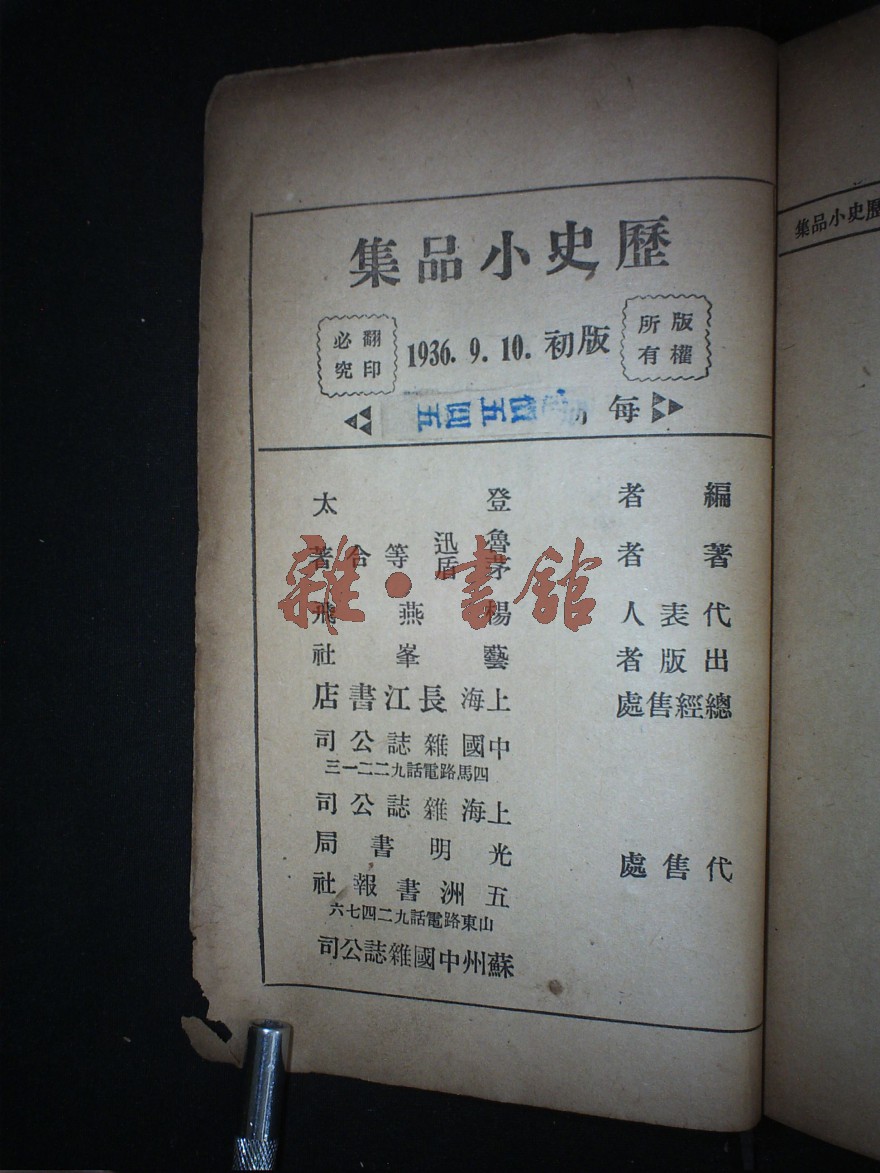 歷史小品集
版權所有
1936. 9. 10. 初版
翻印必究
每
五四五
編著者 登太
著者 魯迅 茅盾 等合著
代表人 楊燕飛
出版者 藝峯社
總經售處 上海長江書店
代售處
中國雜誌公司
四馬路電話九二二一三
上海雜誌公司
光明書局
五洲書報社
山東路電話九二四七六
蘇州中國雜誌公司
歷史小品集
雜·書館